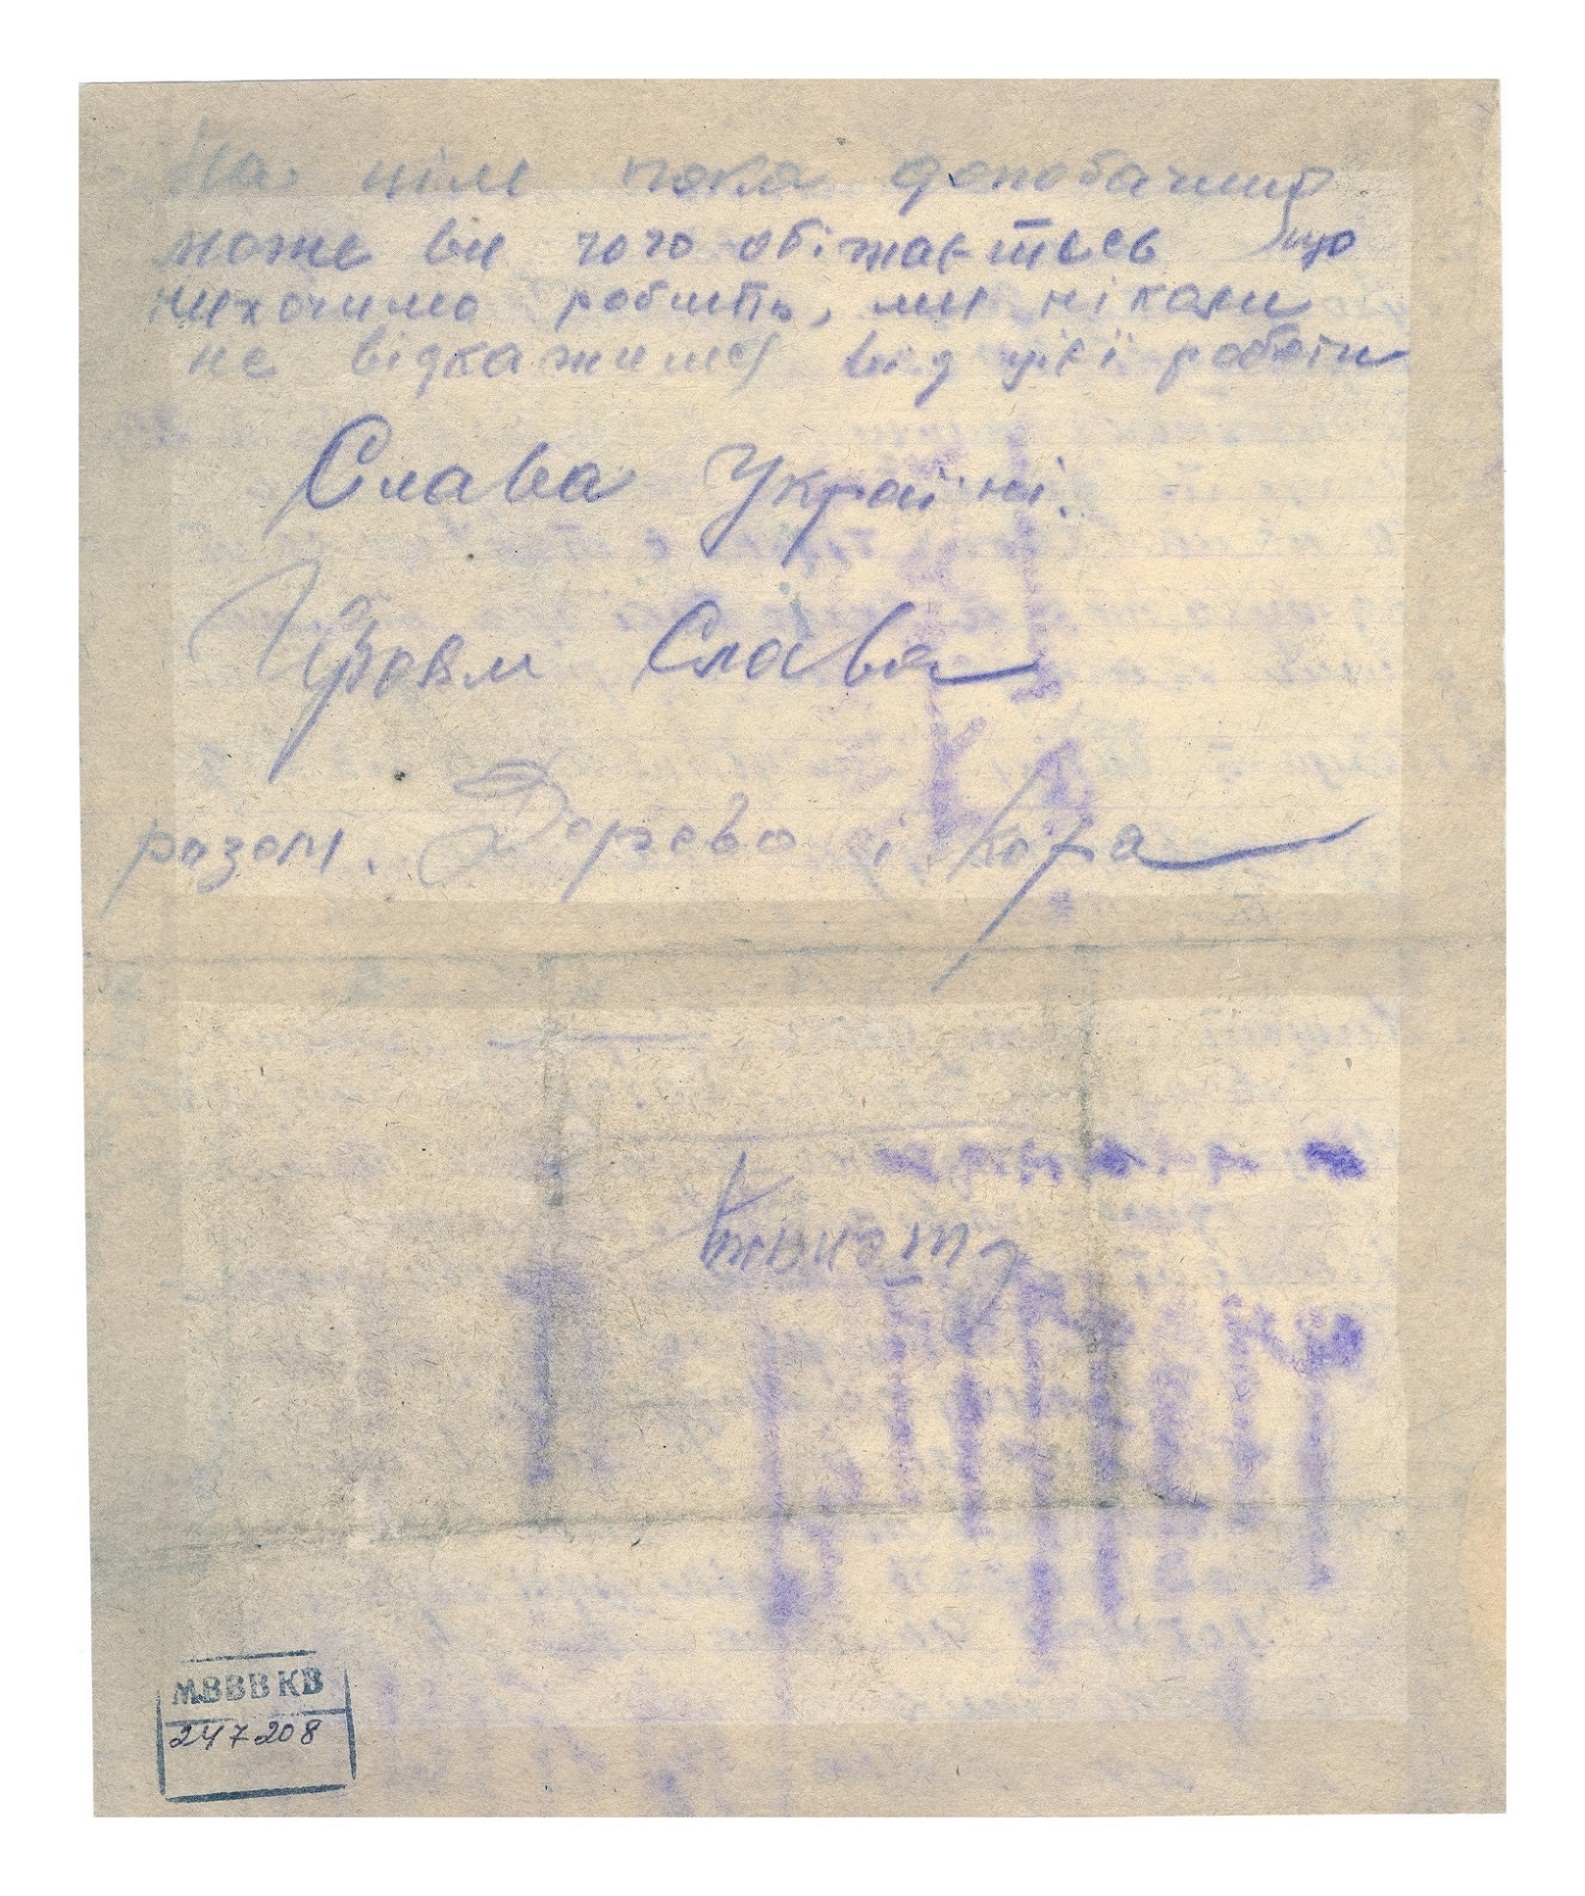 На цім пока допобачині
може ви чого обіжаєтесь що
нихочимо робить, ми ніколи
не відкажимся від цієї роботи
Слава Україні.
Героям Слава
разом. Дерево і Кора
МВВВКВ
247208